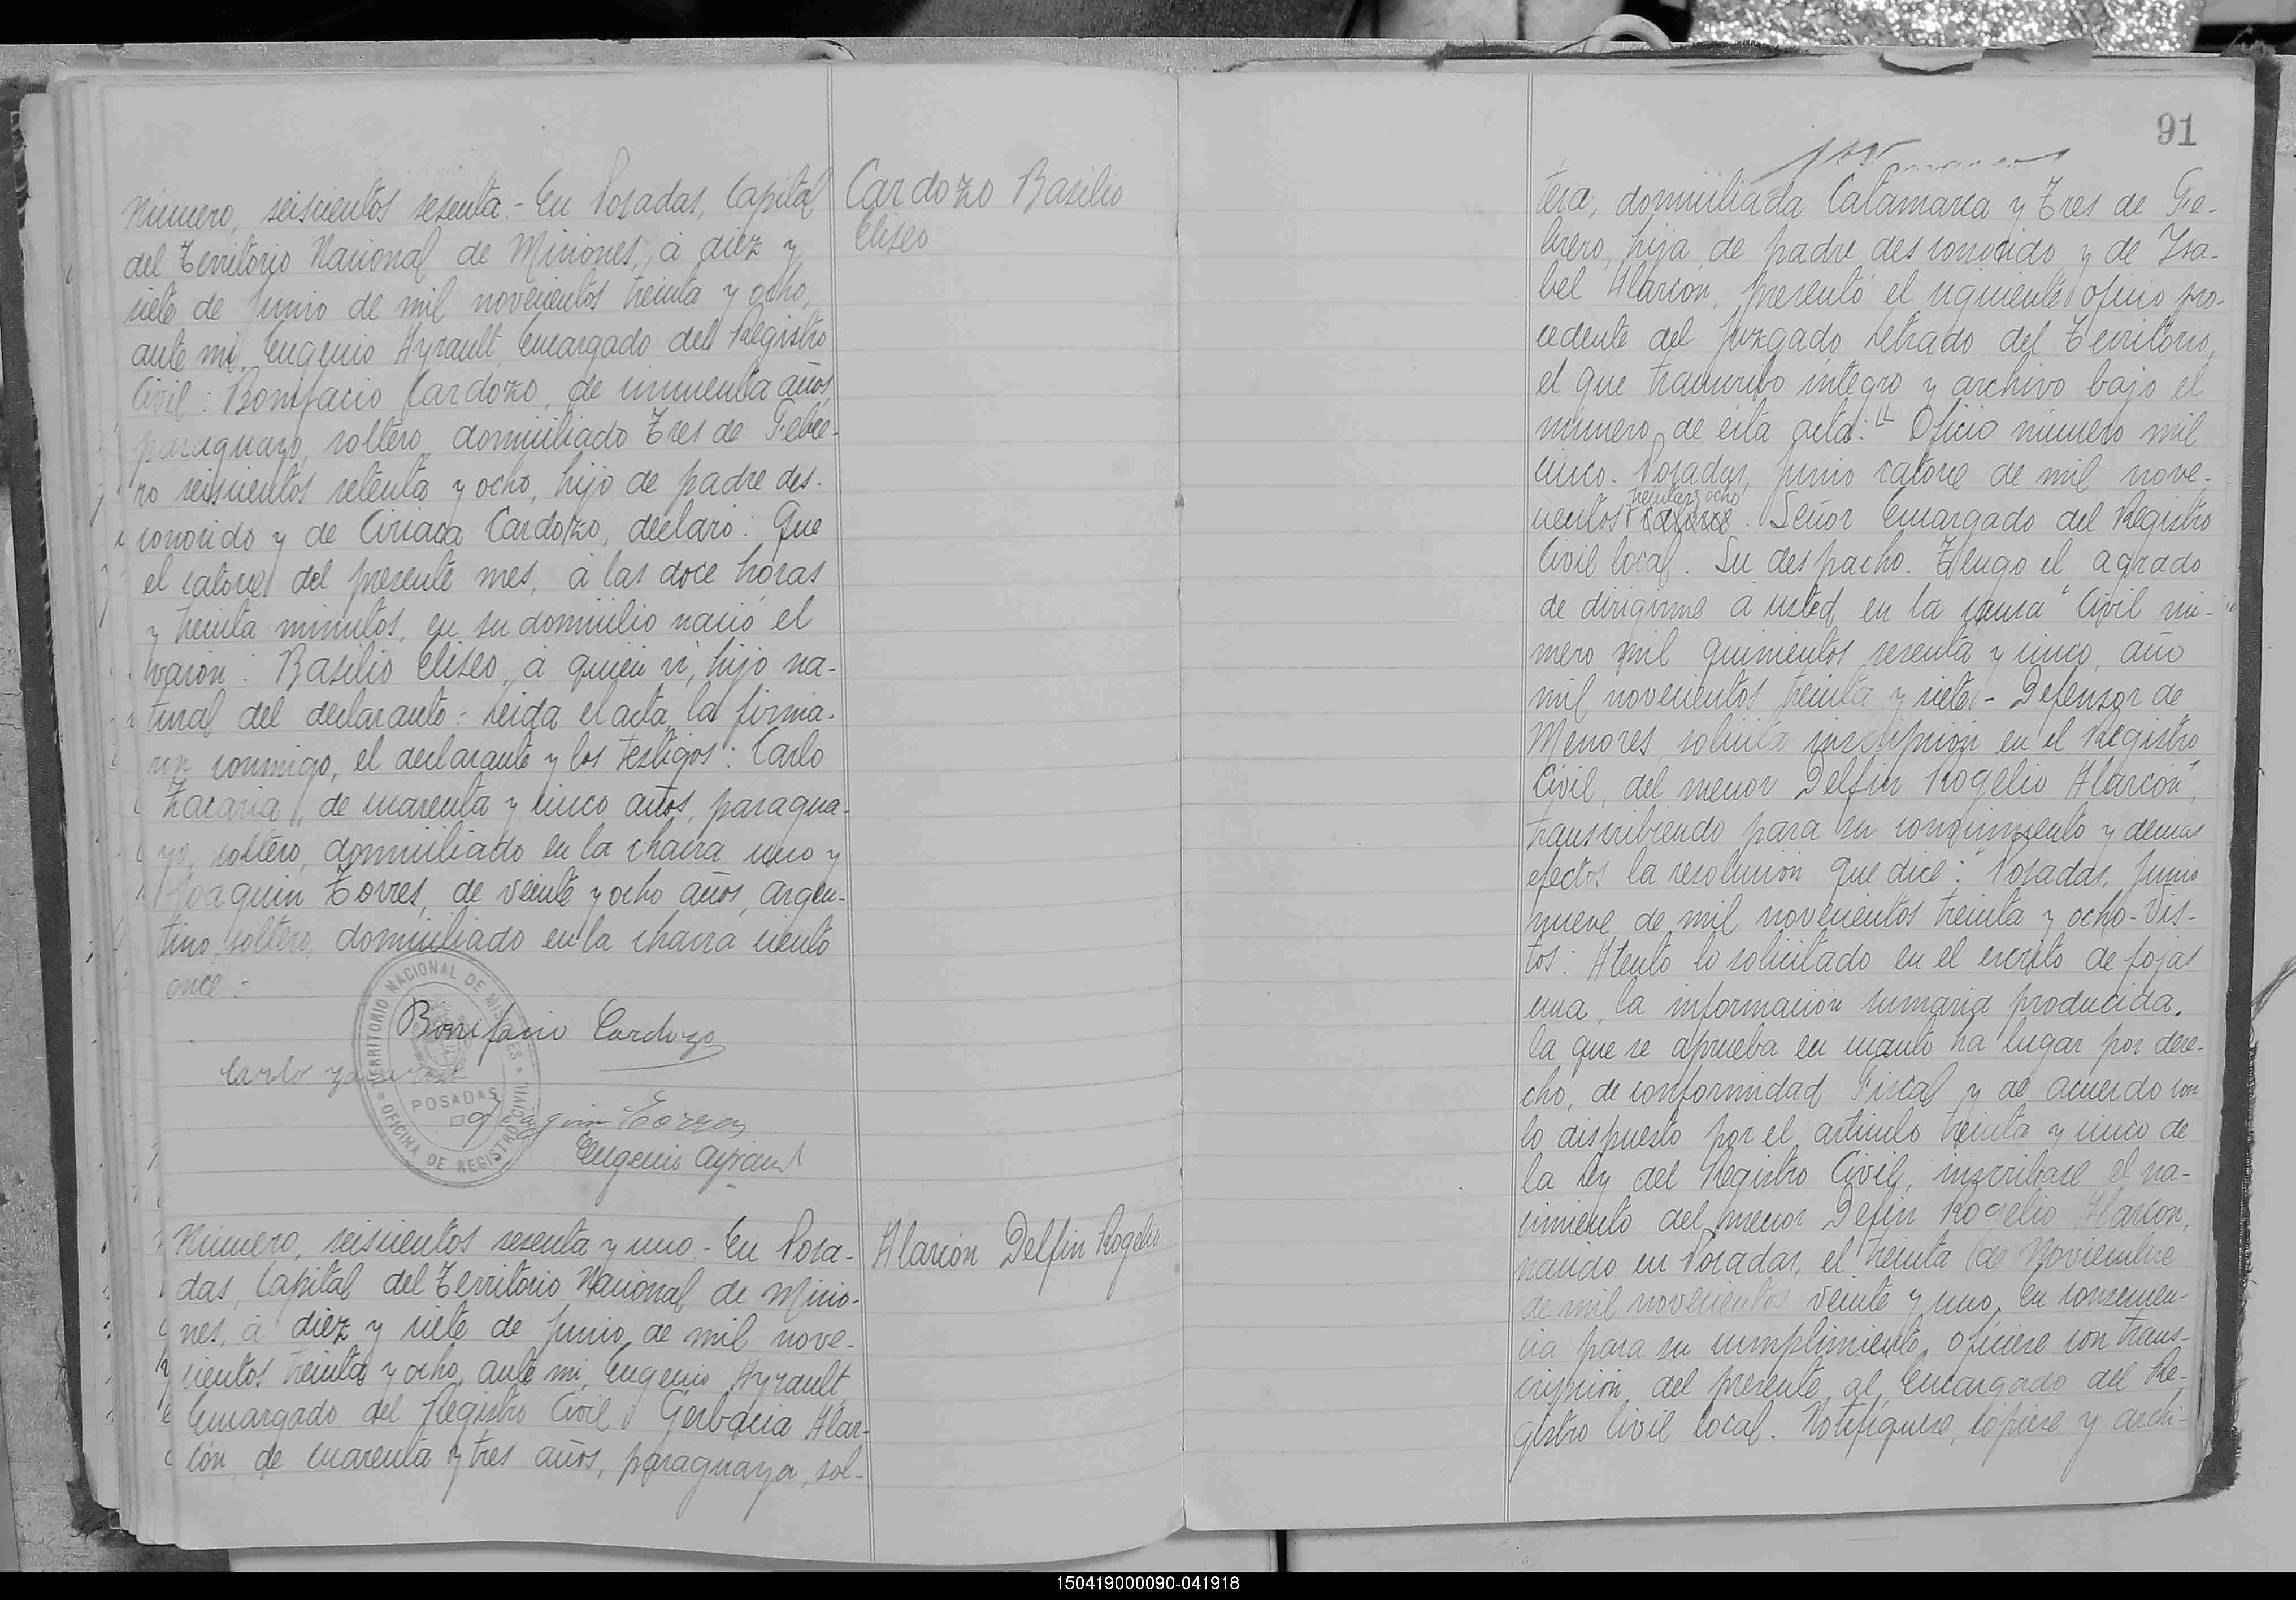 Número, seiscientos sesenta.- En Posadas, Capital
del Territorio Nacional de Misiones, á diez y
siete de Junio de mil novecientos treinta y ocho,
ante mí, Eugenio Ayrault, Encargado del Registro
Civil: Bonifacio Cardozo, de cincuenta años,
paraguayo, soltero, domiciliado Tres de Febre-
ro seiscientos setenta y ocho, hijo de padre des-
conocido y de Ciriaca Cardozo, declaró: Que
el catorce del presente mes, á las doce horas
y treinta minutos, en su domicilio nació el
varón: Basilio Eliseo, á quien ví, hijo na-
tural del declarante:- Leída el acta, la firma-
ron conmigo, el declarante y los testigos: Carlo
Zacaria, de cuarenta y cinco años, paragua-
yo, soltero, domiciliado en la chacra uno y
Joaquin Torres, de veinte y ocho años, argen-
tino, soltero, domiciliado en la chacra ciento
once:-
Cardozo Basilio
Eliseo
Bonifacio Cardozo
Carlo
Joaquin Torres
Eugenio Ayrault
TERRITORIO NACIONAL DE MISIONES
POSADAS
OFICINA DE REGISTRO CIVIL
Número, seiscientos sesenta y uno.- En Posa-
das, Capital del Territorio Nacional de Misio-
nes, á diez y siete de Junio, de mil nove-
cientos treinta y ocho, ante mí, Eugenio Ayrault,
Encargado del Registro Civil: Gerbacia Alar-
cón, de cuarenta y tres años, paraguaya, sol-
Alarcón Delfin Rogelio
91
tera, domiciliada Catamarca y Tres de Fe-
brero, hija de padre desconocido y de Isa-
bel Alarcón, presentó el siguiente oficio pro-
cedente del Juzgado Letrado del Territorio,
el que transcribo íntegro y archivo bajo el
número de esta acta: "Oficio número mil
cinco. Posadas, Junio catorce de mil nove-
treinta y ocho
cientos catorce. Señor Encargado del Registro
Civil local. Su despacho. Tengo el agrado
de dirigirme á usted, en la causa "Civil nú-
mero mil quinientos sesenta y cinco, año
mil novecientos treinta y siete.- Defensor de
Menores, solicita inscripción en el Registro
Civil, del menor Delfin Rogelio Alarcón",
transcribiendo para su conocimiento y demas
efectos la resolución que dice: "Posadas, Junio
nueve de mil novecientos treinta y ocho.- Vis-
tos: Atento lo solicitado en el escrito de fojas
una, la información sumaria producida,
la que se aprueba en cuanto ha lugar por dere-
cho, de conformidad Fiscal y de acuerdo con
lo dispuesto por el artículo treinta y cinco de
la Ley del Registro Civil, inscríbase el na-
cimiento del menor Defin Rogelio Alarcon,
nacido en Posadas, el treinta de Noviembre
de mil novecientos veinte y uno, en consecuen-
cia para su cumplimiento, ofíciese con trans-
cripción del presente al Encargado del Re-
gistro Civil local. Notifíquese, cópiese y archi-
150419000090-041918